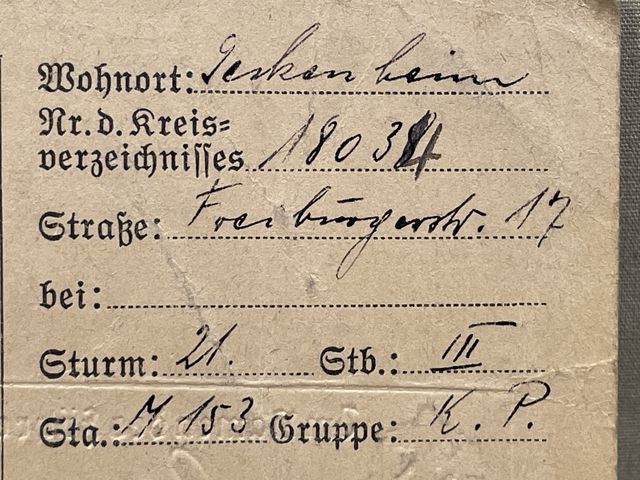 Wohnort: Seckenheim
Nr. d. Kreis=
verzeichnisses 18034
Straße: Freiburgerstr. 17
bei:
Sturm: 21. Stb.: III
Sta.: M 153 Gruppe: K. P.